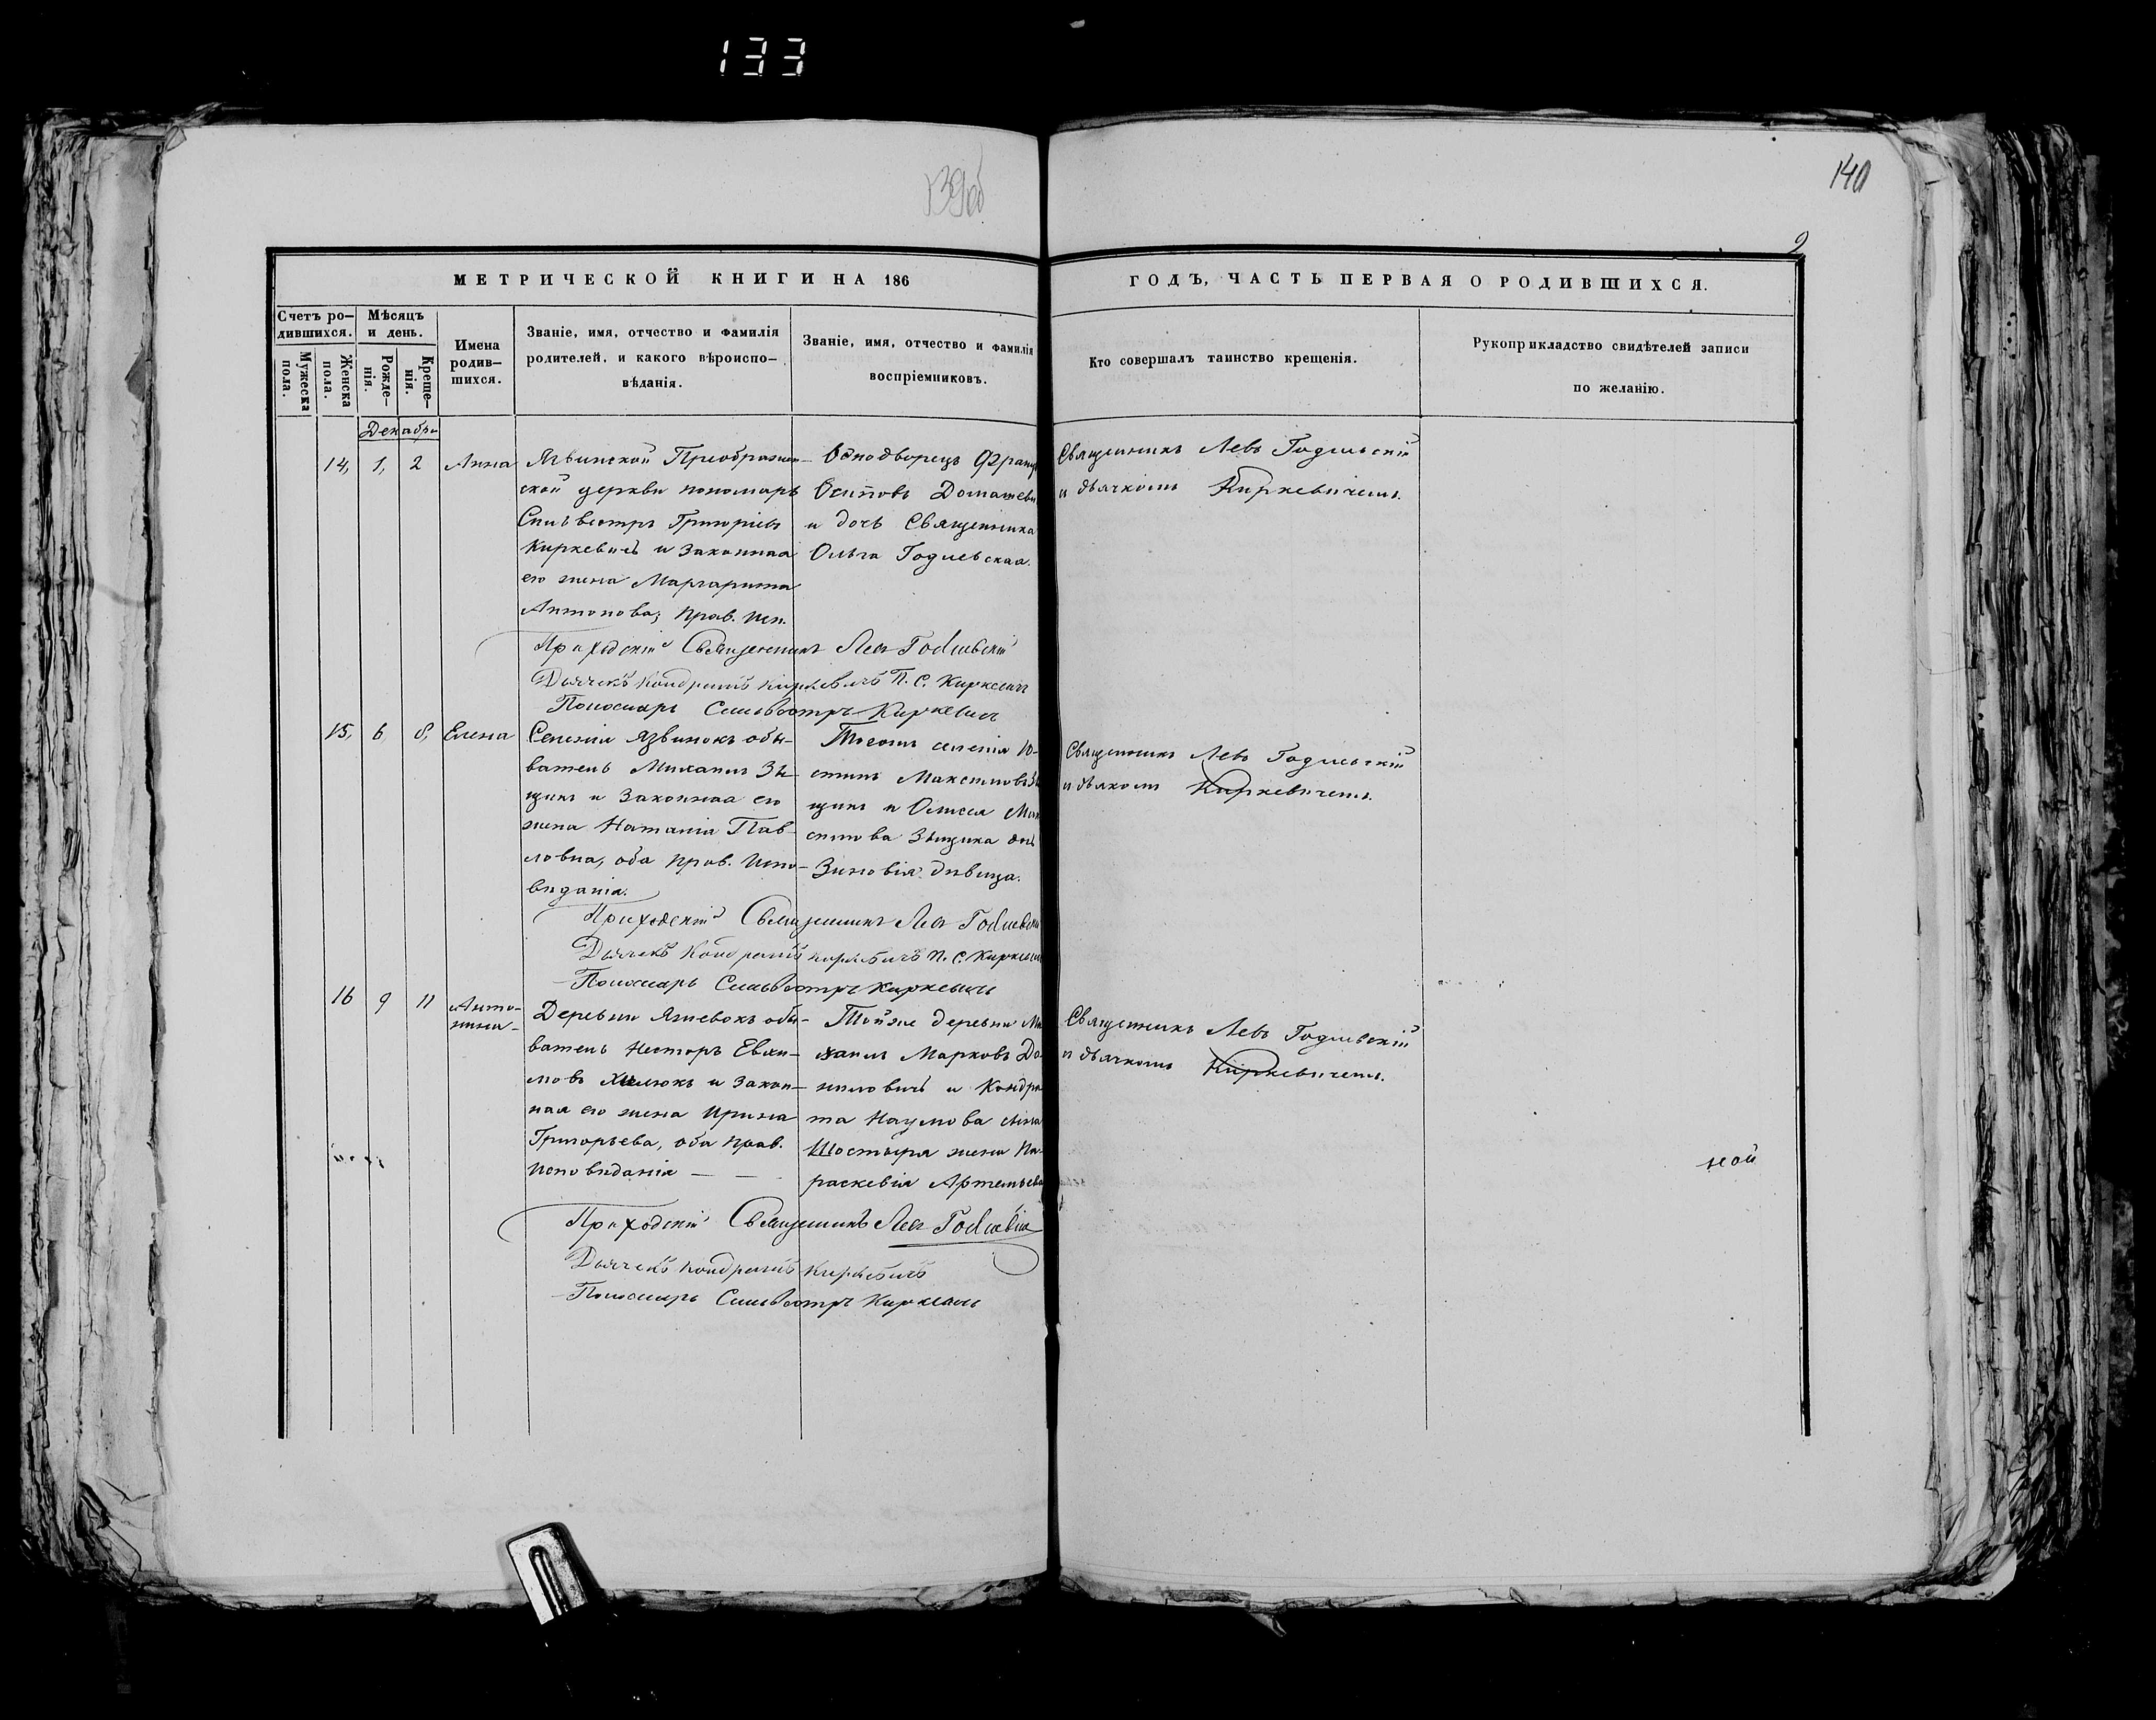 133
139об
140
9
МЕТРИЧЕСКОЙ КНИГИ НА 186
ГОДЪ, ЧАСТЬ ПЕРВАЯ О РОДИВШИХСЯ.
Счетъ ро-
дившихся.
Мужеска
пола.
Женска
пола.
Мѣсяцъ
и день.
Рожде-
нія.
Креще-
нія.
Имена
родив-
шихся.
Званіе, имя, отчество и фамилія
родителей, и какого вѣроиспо-
вѣданія.
Званіе, имя, отчество и фамилія
воспріемниковъ.
Кто совершалъ таинство крещенія.
Рукоприкладство свидѣтелей записи
по желанію.
Декабрь
14, 1, 2 Анна
Язвинской Преображен-
ской церкви пономарь
Сильвестръ Григоріевъ
Киркевичъ и законная
его жена Маргарита
Антонова; прав. исп.
Однодворецъ Франц
Осиповъ Доташеви
и дочь Священника
Ольга Годлевская.
Священникъ Левъ Годлевскій
и дьячкомъ Киркевичемъ.
Приходскій Священникъ Левъ Годлевскій
Дьячекъ Кондратъ Киркевичъ П. С. Киркевичъ
Пономарь Сильвестръ Киркевичъ
15, 6, 8, Елена
Селенія Язвинокъ обы-
ватель Михаилъ Зы-
щикъ и законная его
жена Наталія Пав-
ловна, оба прав. испо-
вѣданія.
Тогожъ селенія Ю-
стинъ Максимовъ Зы
щикъ и Олисея Мак
симова Зыщика дочь
Зиновія дѣвица.
Священникъ Левъ Годлевскій
и дьякомъ Киркевичемъ.
Приходскій Священникъ Левъ Годлевскій
Дьячекъ Кондратъ Киркевичъ П. С. Киркевичъ
Пономарь Сильвестръ Киркевичъ
16 9 11 Анто-
нина-
Деревни Язвевокъ обы-
ватель Несторъ Евхи-
мовъ Хилюкъ и закон-
ная его жена Ирина
Григорьева, оба прав.
исповѣданія — —
Тойже деревни Ми
хаилъ Марковъ Да-
ниловичъ и Кондра
та Наумова сына
Шостыря жена Па-
раскевія Артемьева
Священникъ Левъ Годлевскій
и дьячкомъ Киркевичемъ.
ной
Приходскій Священникъ Левъ Годлевскій
Дьячекъ Кондратъ Киркевичъ
Пономарь Сильвестръ Киркевичъ